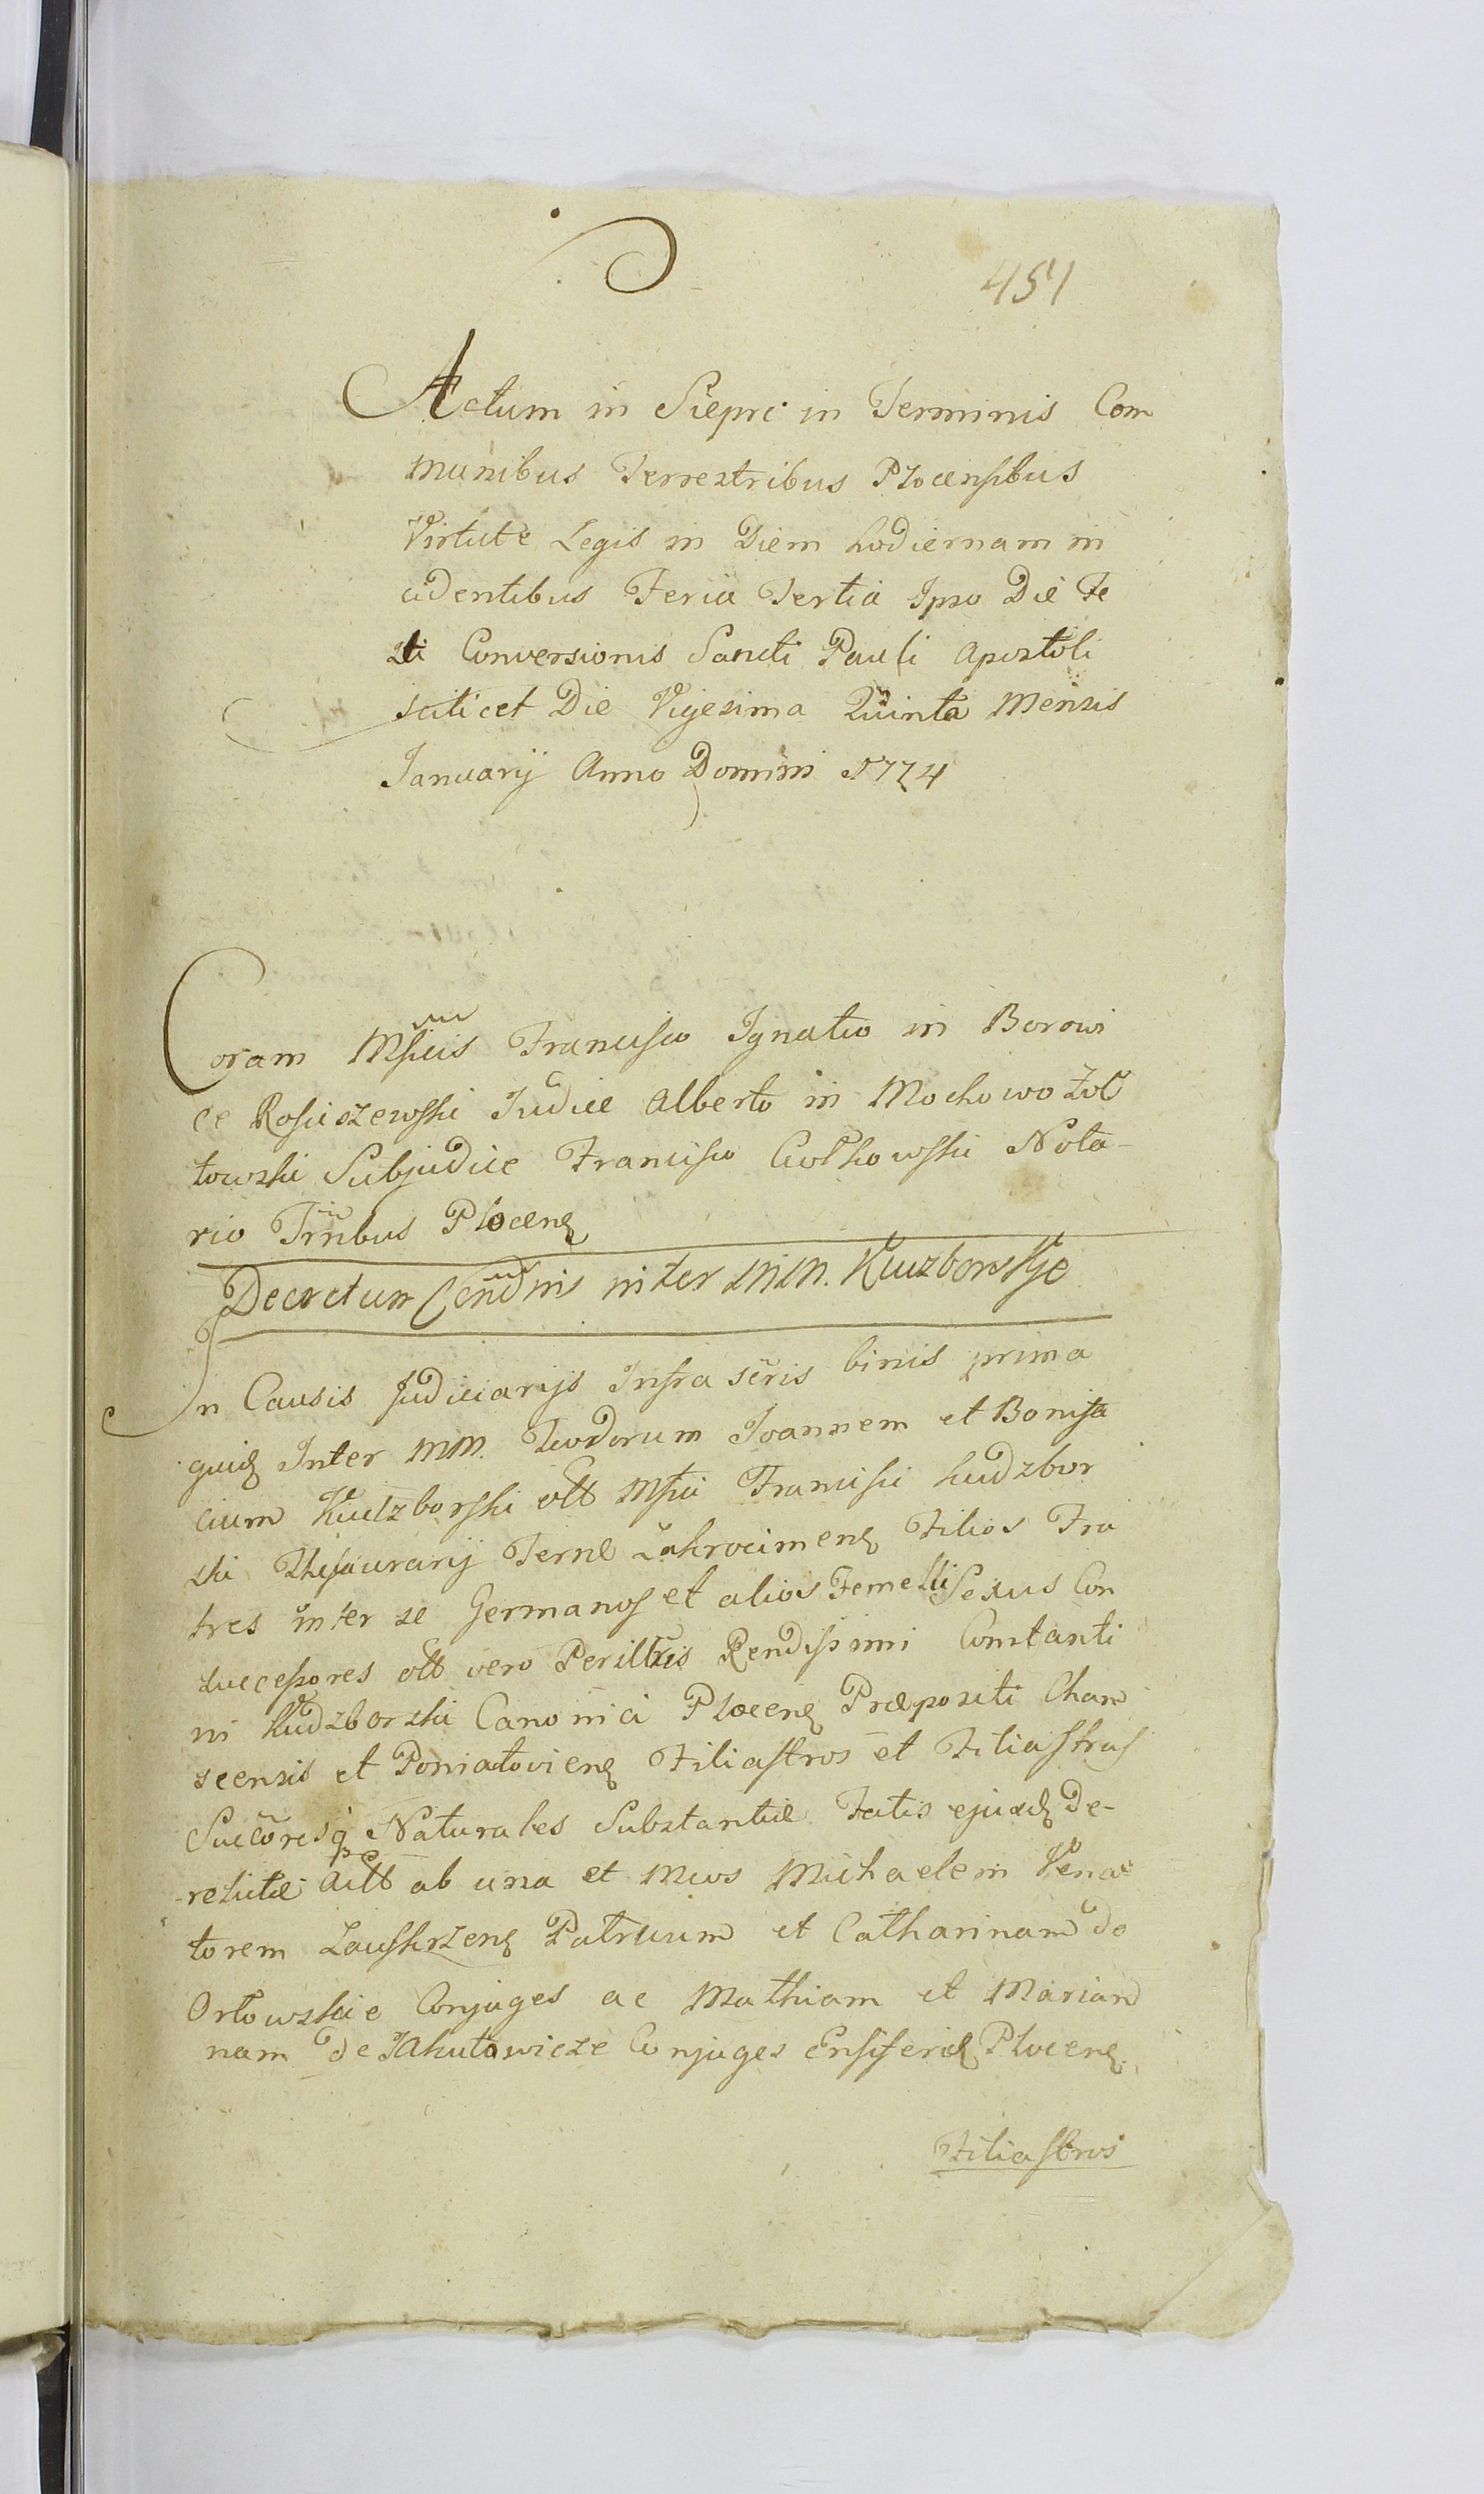 451
Actum in Sieprc in Terminis Com
munibus Terrestribus Plocensibus
Virtute Legis in Diem hodiernam in
cidentibus Feria Tertia Ipso Die Fe
sti Conversionis Sancti Pauli Apostoli
scilicet Die Vigesima Quinta Mensis
Januarij Anno Domini 1774
Coram Mficis Francisco Ignatio in Borowi
ce Rosciszewski Judice Alberto in Mochowo Zol
towski Subjudice Francisco Ciolkowski Nota-
rio Trrnbus Plocen
Decretum Cendnis inter MM. Kuczborskie
In Causis Judiciarijs Infra scris binis prima
quid Inter MM. Teodorum Joannem et Bonifa
cium Kuczborski olt Mfci Francisci Kudzbor
ski Thesaurarij Terrae Zakrocimen Filios Fra
tres inter se Germanos et alios Femelli Sexus Con
successores olt vero Perillris Rendissimi Constanti
ni Kudzborski Canonici Plocen Praepositi Cham
scensis et Poniatovien Filiastros et Filiastras
Succoresq Naturales Substantiae Fatis ejusd De-
relictae Actt ab una et Mcos Michaelem Vena
torem Zawskrzen Patruum et Catharinam de
Orlowskie Conjuges ac Mathiam et Marian
nam de Jakutowicze Conjuges Ensiferid Plocen
Filiastros